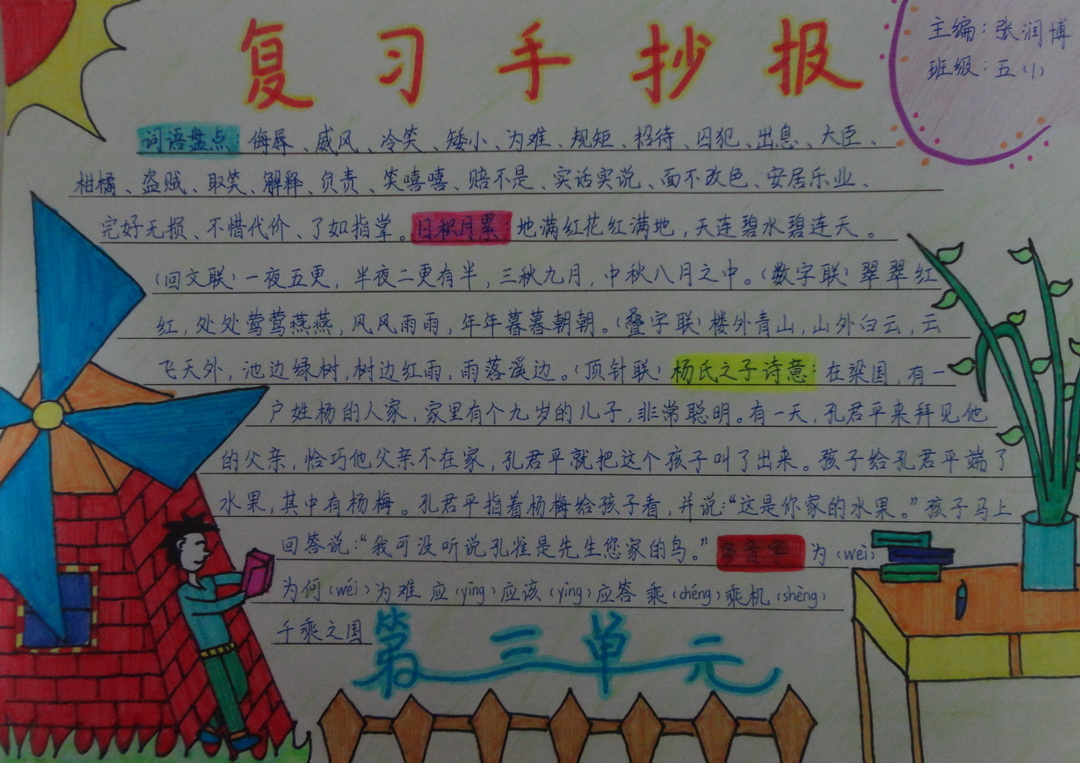 复习手抄报
主编：张润博
班级：五（1）
词语盘点：侮辱、威风、冷笑、矮小、为难、规矩、招待、囚犯、出息、大臣、
柑橘、盗贼、取笑、解释、负责、笑嘻嘻、赔不是、实话实说、面不改色、安居乐业、
完好无损、不惜代价、了如指掌。日积月累：地满红花红满地，天连碧水碧连天。
（回文联）一夜五更，半夜二更有半，三秋九月，中秋八月之中。（数字联）翠翠红
红，处处莺莺燕燕，风风雨雨，年年暮暮朝朝。（叠字联）楼外青山，山外白云，云
飞天外，池边绿树，树边红雨，雨落溪边。（顶针联）杨氏之子诗意：在梁国，有一
户姓杨的人家，家里有个九岁的儿子，非常聪明。有一天，孔君平来拜见他
的父亲，恰巧他父亲不在家，孔君平就把这个孩子叫了出来。孩子给孔君平端了
水果，其中有杨梅。孔君平指着杨梅给孩子看，并说：“这是你家的水果。”孩子马上
回答说：“我可没听说孔雀是先生您家的鸟。”多音字 为（wèi）
为何（wéi）为难 应（yīng）应该（yìng）应答 乘（chéng）乘机（shèng）
千乘之国
第三单元